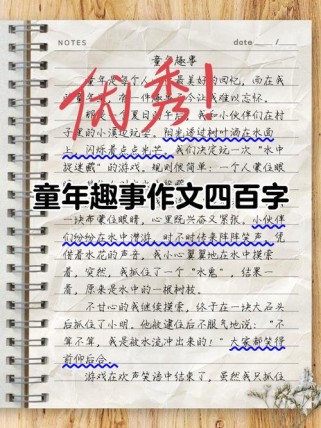 NOTES date: /
童年趣事
优秀!
最美好的回忆，而在我
今让我难以忘怀。
我和小伙伴们在村
子里的小溪边玩耍。阳光透过树叶洒在水面
上，闪烁着点点光芒。我们决定玩一次“水中
捉迷藏”的游戏。规则很简单：一个人蒙住眼
童年趣事作文四百字
一块布蒙住眼睛，心里既兴奋又紧张。小伙伴
们纷纷在水中潜游，时不时传来阵阵笑声。凭
借着水花的声音，我小心翼翼地在水中摸索
着，突然，我抓住了一个“水鬼”，结果一
看，原来是水中的一根树枝。
不甘心的我继续摸索，终于在一块大石头
后抓住了小明。他被逮住后不服气地说：“不
算不算，我是被水流冲出来的！”大家都笑得
前仰后合。
游戏在欢声笑语中结束了，虽然我只抓住